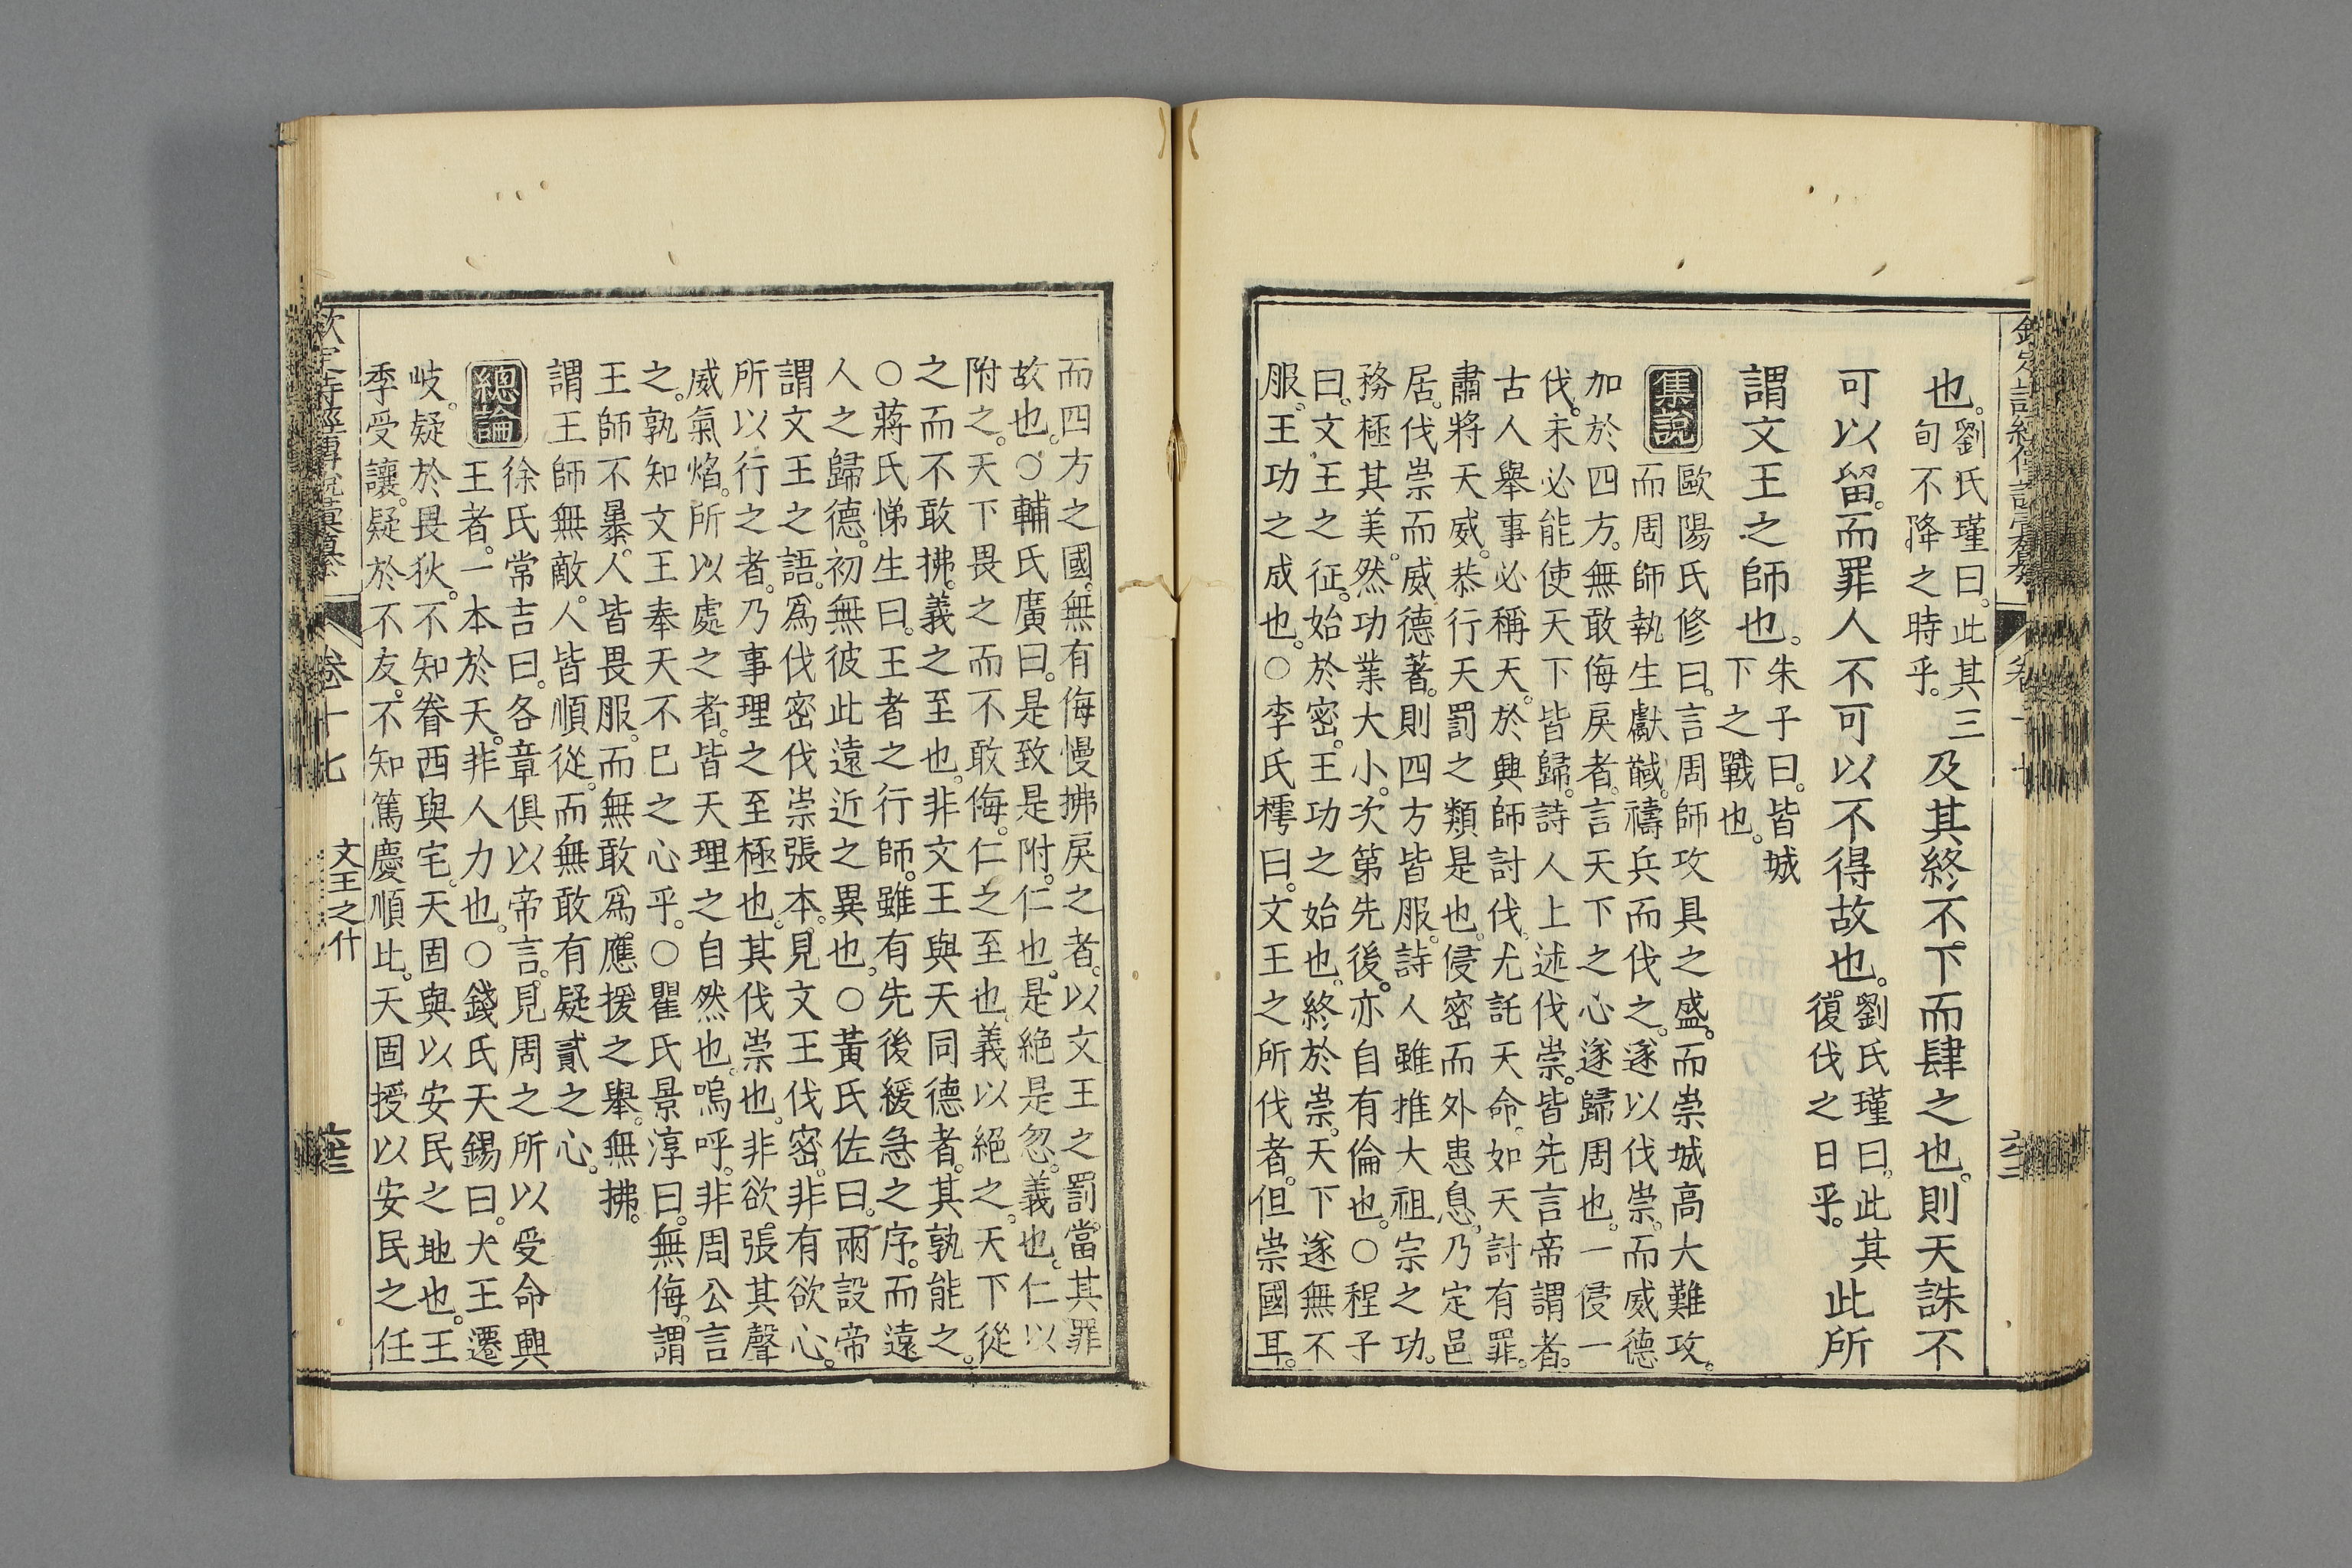 也。劉氏瑾曰。此其三旬不降之時乎。及其終不下而肆之也。則天誅不
可以留。而罪人不可以不得故也。劉氏瑾曰。此其復伐之日乎。此所
謂文王之師也。朱子曰。皆城下之戰也。
集說 歐陽氏修曰。言周師攻具之盛。而崇城高大難攻。
而周師執生獻馘。禱兵而伐之。遂以伐崇。而威德
加於四方。無敢侮戾者。言天下之心遂歸周也。一侵一
伐。未必能使天下皆歸。詩人上述伐崇。皆先言帝謂者。
古人舉事必稱天。於興師討伐。尤託天命。如天討有罪。
肅將天威。恭行天罰之類是也。侵密而外患息。乃定邑
居。伐崇而威德著。則四方皆服。詩人雖推大祖宗之功。
務極其美。然功業大小。次第先後。亦自有倫也。○程子
曰。文王之征。始於密。王功之始也。終於崇。天下遂無不
服。王功之成也。○李氏樗曰。文王之所伐者。但崇國耳。
而四方之國。無有侮慢拂戾之者。以文王之罰。當其罪
故也。○輔氏廣曰。是致是附。仁也。是絕是忽。義也。仁以
附之。天下畏之而不敢侮。仁之至也。義以絕之。天下從
之而不敢拂。義之至也。非文王與天同德者。其孰能之。
○蔣氏悌生曰。王者之行師。雖有先後緩急之序。而遠
人之歸德。初無彼此遠近之異也。○黃氏佐曰。兩設帝
謂文王之語。爲伐密伐崇張本。見文王伐密。非有欲心。
所以行之者。乃事理之至極也。其伐崇也。非欲張其聲
威氣焰。所以處之者。皆天理之自然也。嗚呼。非周公言
之。孰知文王奉天不已之心乎。○瞿氏景淳曰。無侮。謂
王師不暴。人皆畏服。而無敢爲應援之舉。無拂。
謂王師無敵。人皆順從。而無敢有疑貳之心。
總論 徐氏常吉曰。各章俱以帝言。見周之所以受命興
王者。一本於天。非人力也。○錢氏天錫曰。大王遷
岐。疑於畏狄。不知眷西與宅。天固與以安民之地也。王
季受讓。疑於不友。不知篤慶順比。天固授以安民之任
卷十七
文王之什